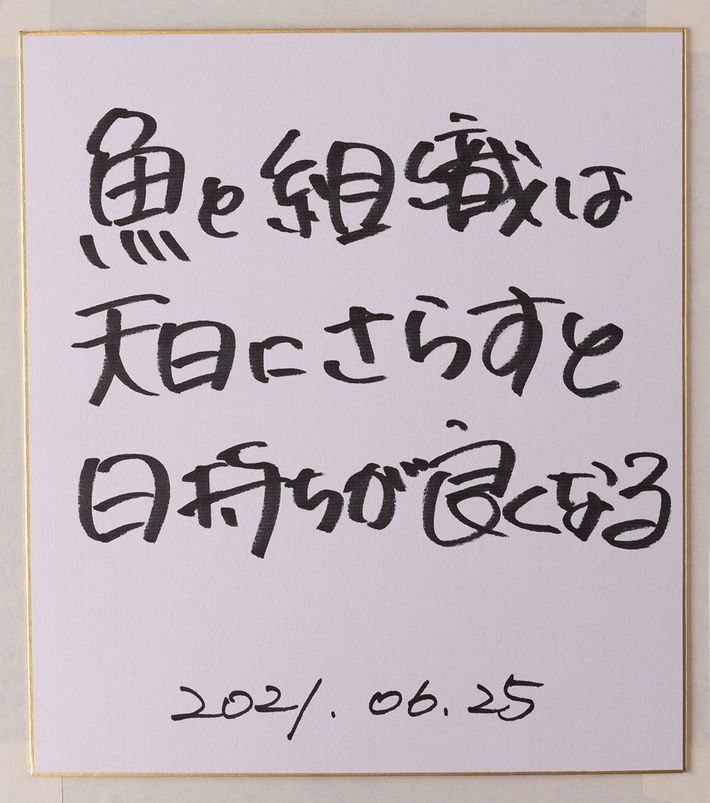 魚と組織は
天日にさらすと
日持ちが良くなる
2021.06.25